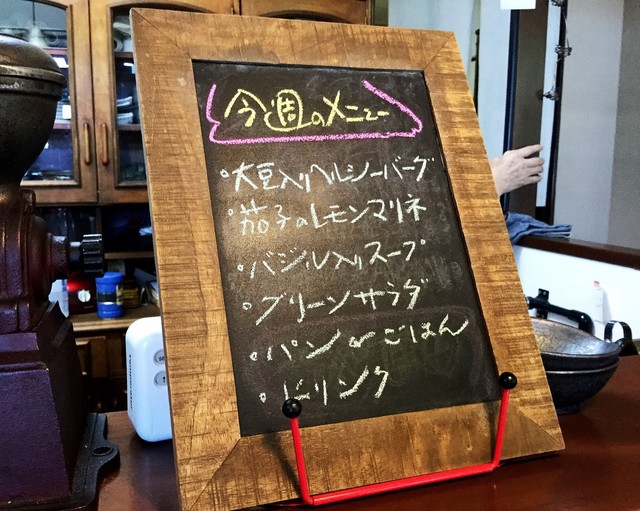 今週のメニュー
・大豆入りヘルシーバーグ
・茄子のレモンマリネ
・バジル入りスープ
・グリーンサラダ
・パン or ごはん
・ドリンク